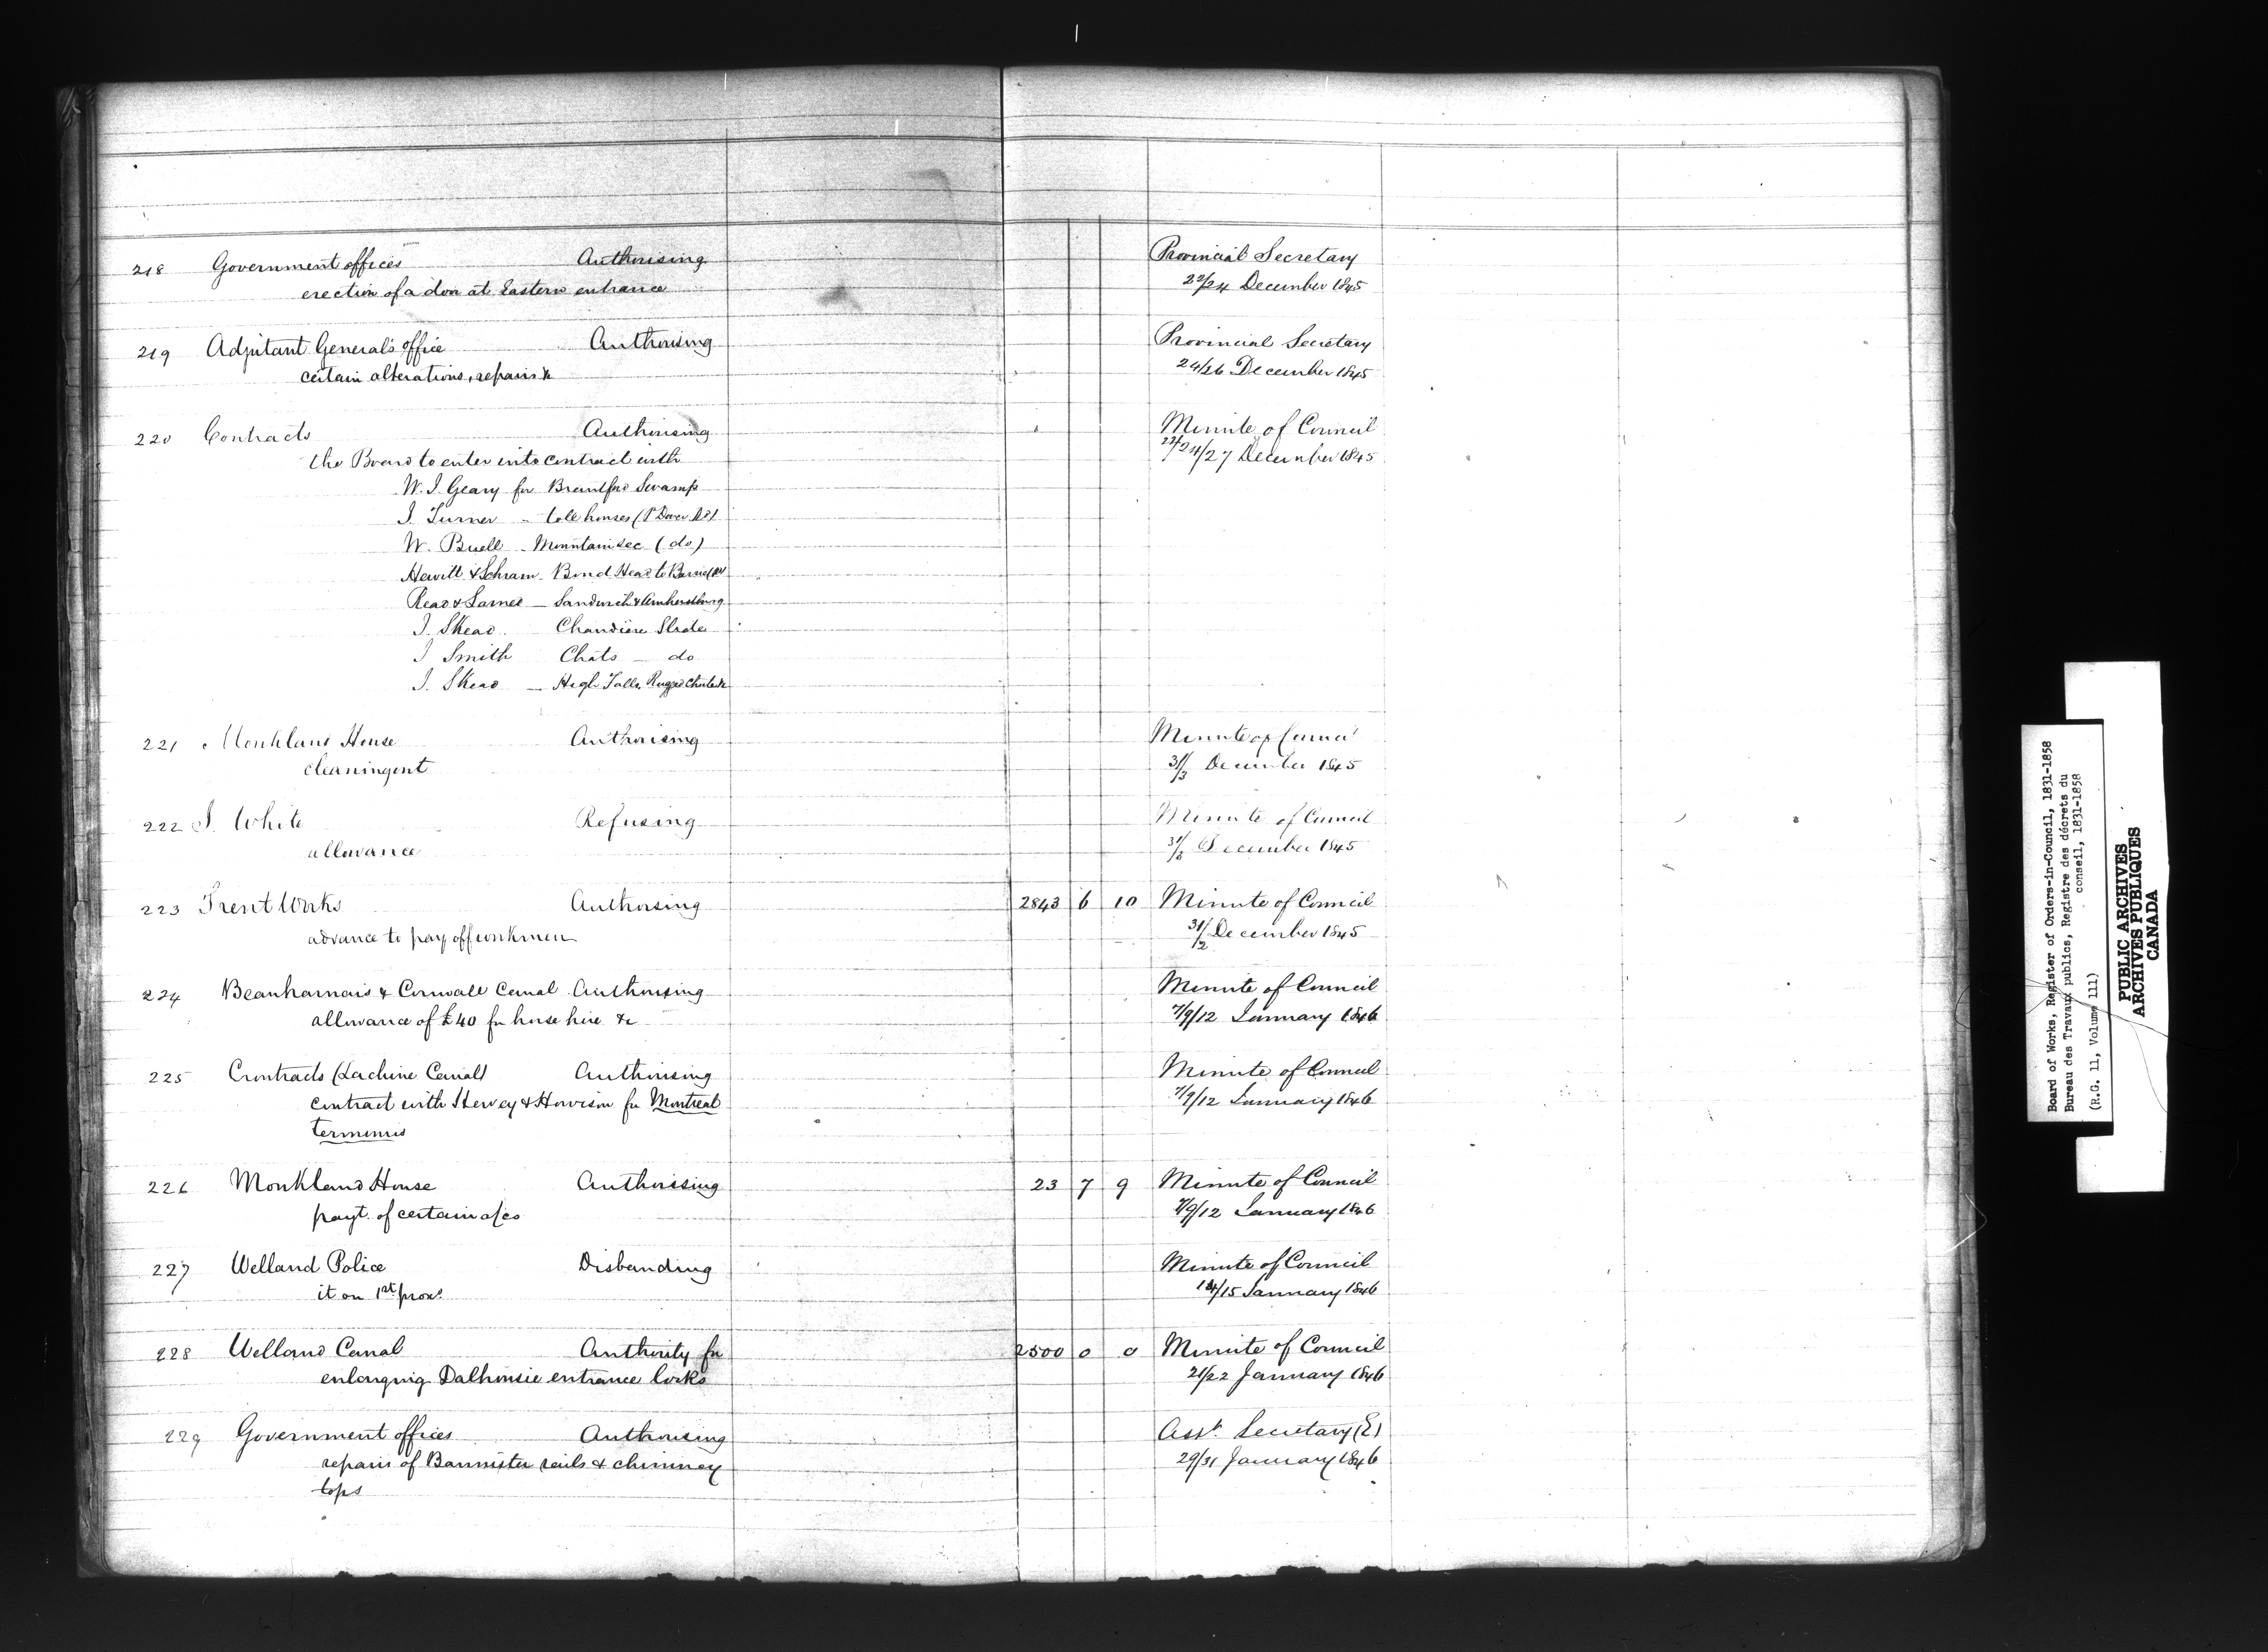 218 Government offices Authorising Provincial Secretary
erection of a door at Eastern entrance 22/24 December 1845
219 Adjutant General's office Authorising Provincial Secretary
certain alterations, repairs &c 24/26 December 1845
220 Contracts Authorising Minute of Council
the Board to enter into contract with 22/24/27 December 1845
W. J. Geary for Brantford Swamp
J. Turner - toll houses (P Dover Rd)
W. Buell - Mountain sec (do)
Hewitt & Schram - Bond Head to Barrie
Read & - Sandwich & Amherstburg
J. Skead Chaudière Slide
J Smith Chats - do
J. Skead - High Falls, Rugged Chute &c
221 Monkland House Authorising Minute of Council
cleaning out 31/3 December 1845
222 J. White Refusing Minute of Council
allowance December 1845
223 Trent Works Authorising 2843 6 10 Minute of Council
advance to pay off workmen 31/2 December 1845
224 Beauharnois & Cornwall Canal Authorising Minute of Council
allowance of £40 for horse hire &c 7/9/12 January 1846
225 Contracts (Lachine Canal) Authorising Minute of Council
contract with Hervey & Howison for Montreal 7/9/12 January 1846
terminus
226 Monkland House Authorising 23 7 9 Minute of Council
payt. of certain a/cs 7/9/12 January 1846
227 Welland Police Disbanding Minute of Council
it on 1st proxo. 14/15 January 1846
228 Welland Canal Authority for 2500 0 0 Minute of Council
enlarging Dalhousie entrance locks 21/22 January 1846
229 Government offices Authorising Asst. Secretary (E)
repairs of Bannister rails & chimney 29/31 January 1846
tops
Board of Works, Register of Orders-in-Council, 1831-1858
Bureau des Travaux publics, Registre des décrets du
conseil, 1831-1858
(R.G. 11, Volume 111)
PUBLIC ARCHIVES
ARCHIVES PUBLIQUES
CANADA